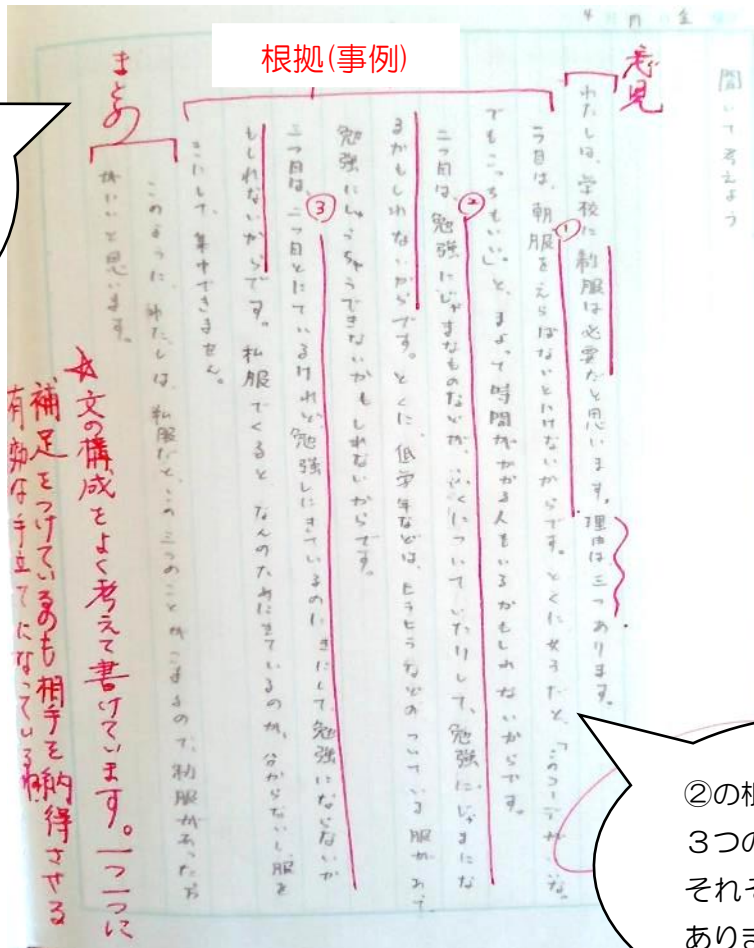 4 月
聞いて考えよう
意見
わたしは、学校に制服は必要だと思います。理由は三つあります。
根拠(事例)
①
一つ目は、朝服をえらばないといけないからです。とくに女子だと、「このコーデがいいな。
でもこっちもいい。」と、まよって時間がかかる人もいるかもしれないからです。
②
二つ目は、勉強にじゃまなものなどが、ふくについていたりして、勉強にじゃまにな
るかもしれないからです。とくに、低学年などは、ヒラヒラなどのついている服があって、
勉強にしゅうちゅうできないかもしれないからです。
③
三つ目は、二つ目とにているけれど、勉強しにきているのに きにして、勉強にならないか
もしれないからです。私服でくると なんのためにきているのか、分からないし、服を
きにして、集中できません。
まとめ
このように、わたしは、私服だと、この三つのことがこまるので、制服があった方
がいいと思います。
☆文の構成をよく考えて書けています。一つ一つに
補足をつけているのも相手を納得させる
有効な手立てになっているね
②の根
3つの
それそ
ありま